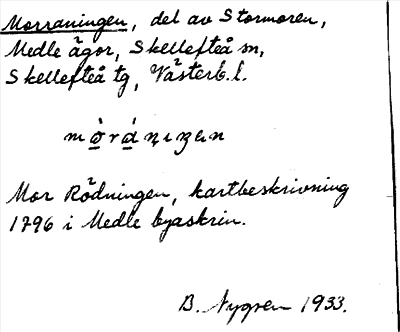 Morraningen, del av Stormoren,
Medle ägor, Skellefteå sn,
Skellefteå tg, Västerb. l.
Mor Rödningen, kartbeskrivning
1796 i Medle byaskrin.
B. Nygren 1933.